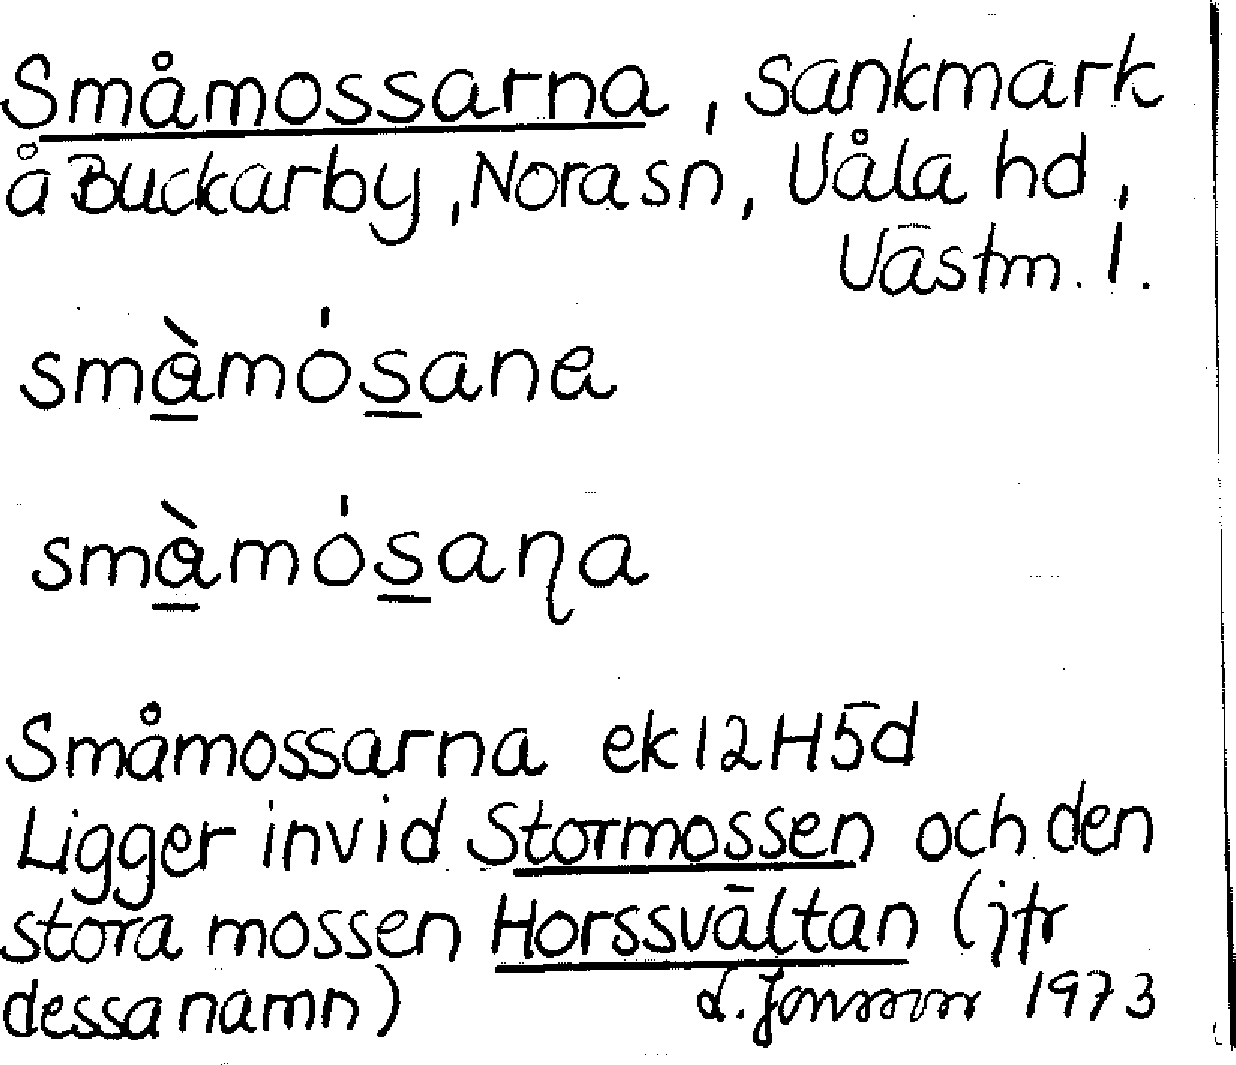 Småmossarna, sankmark
å Buckarby, Nora sn, Våla hd,
Västm. l.
smàmósana
smàmósaɳa
Småmossarna ek 12H5d
Ligger invid Stormossen och den
stora mossen Horssvältan (jfr
dessa namn) d. Jonsson 1973